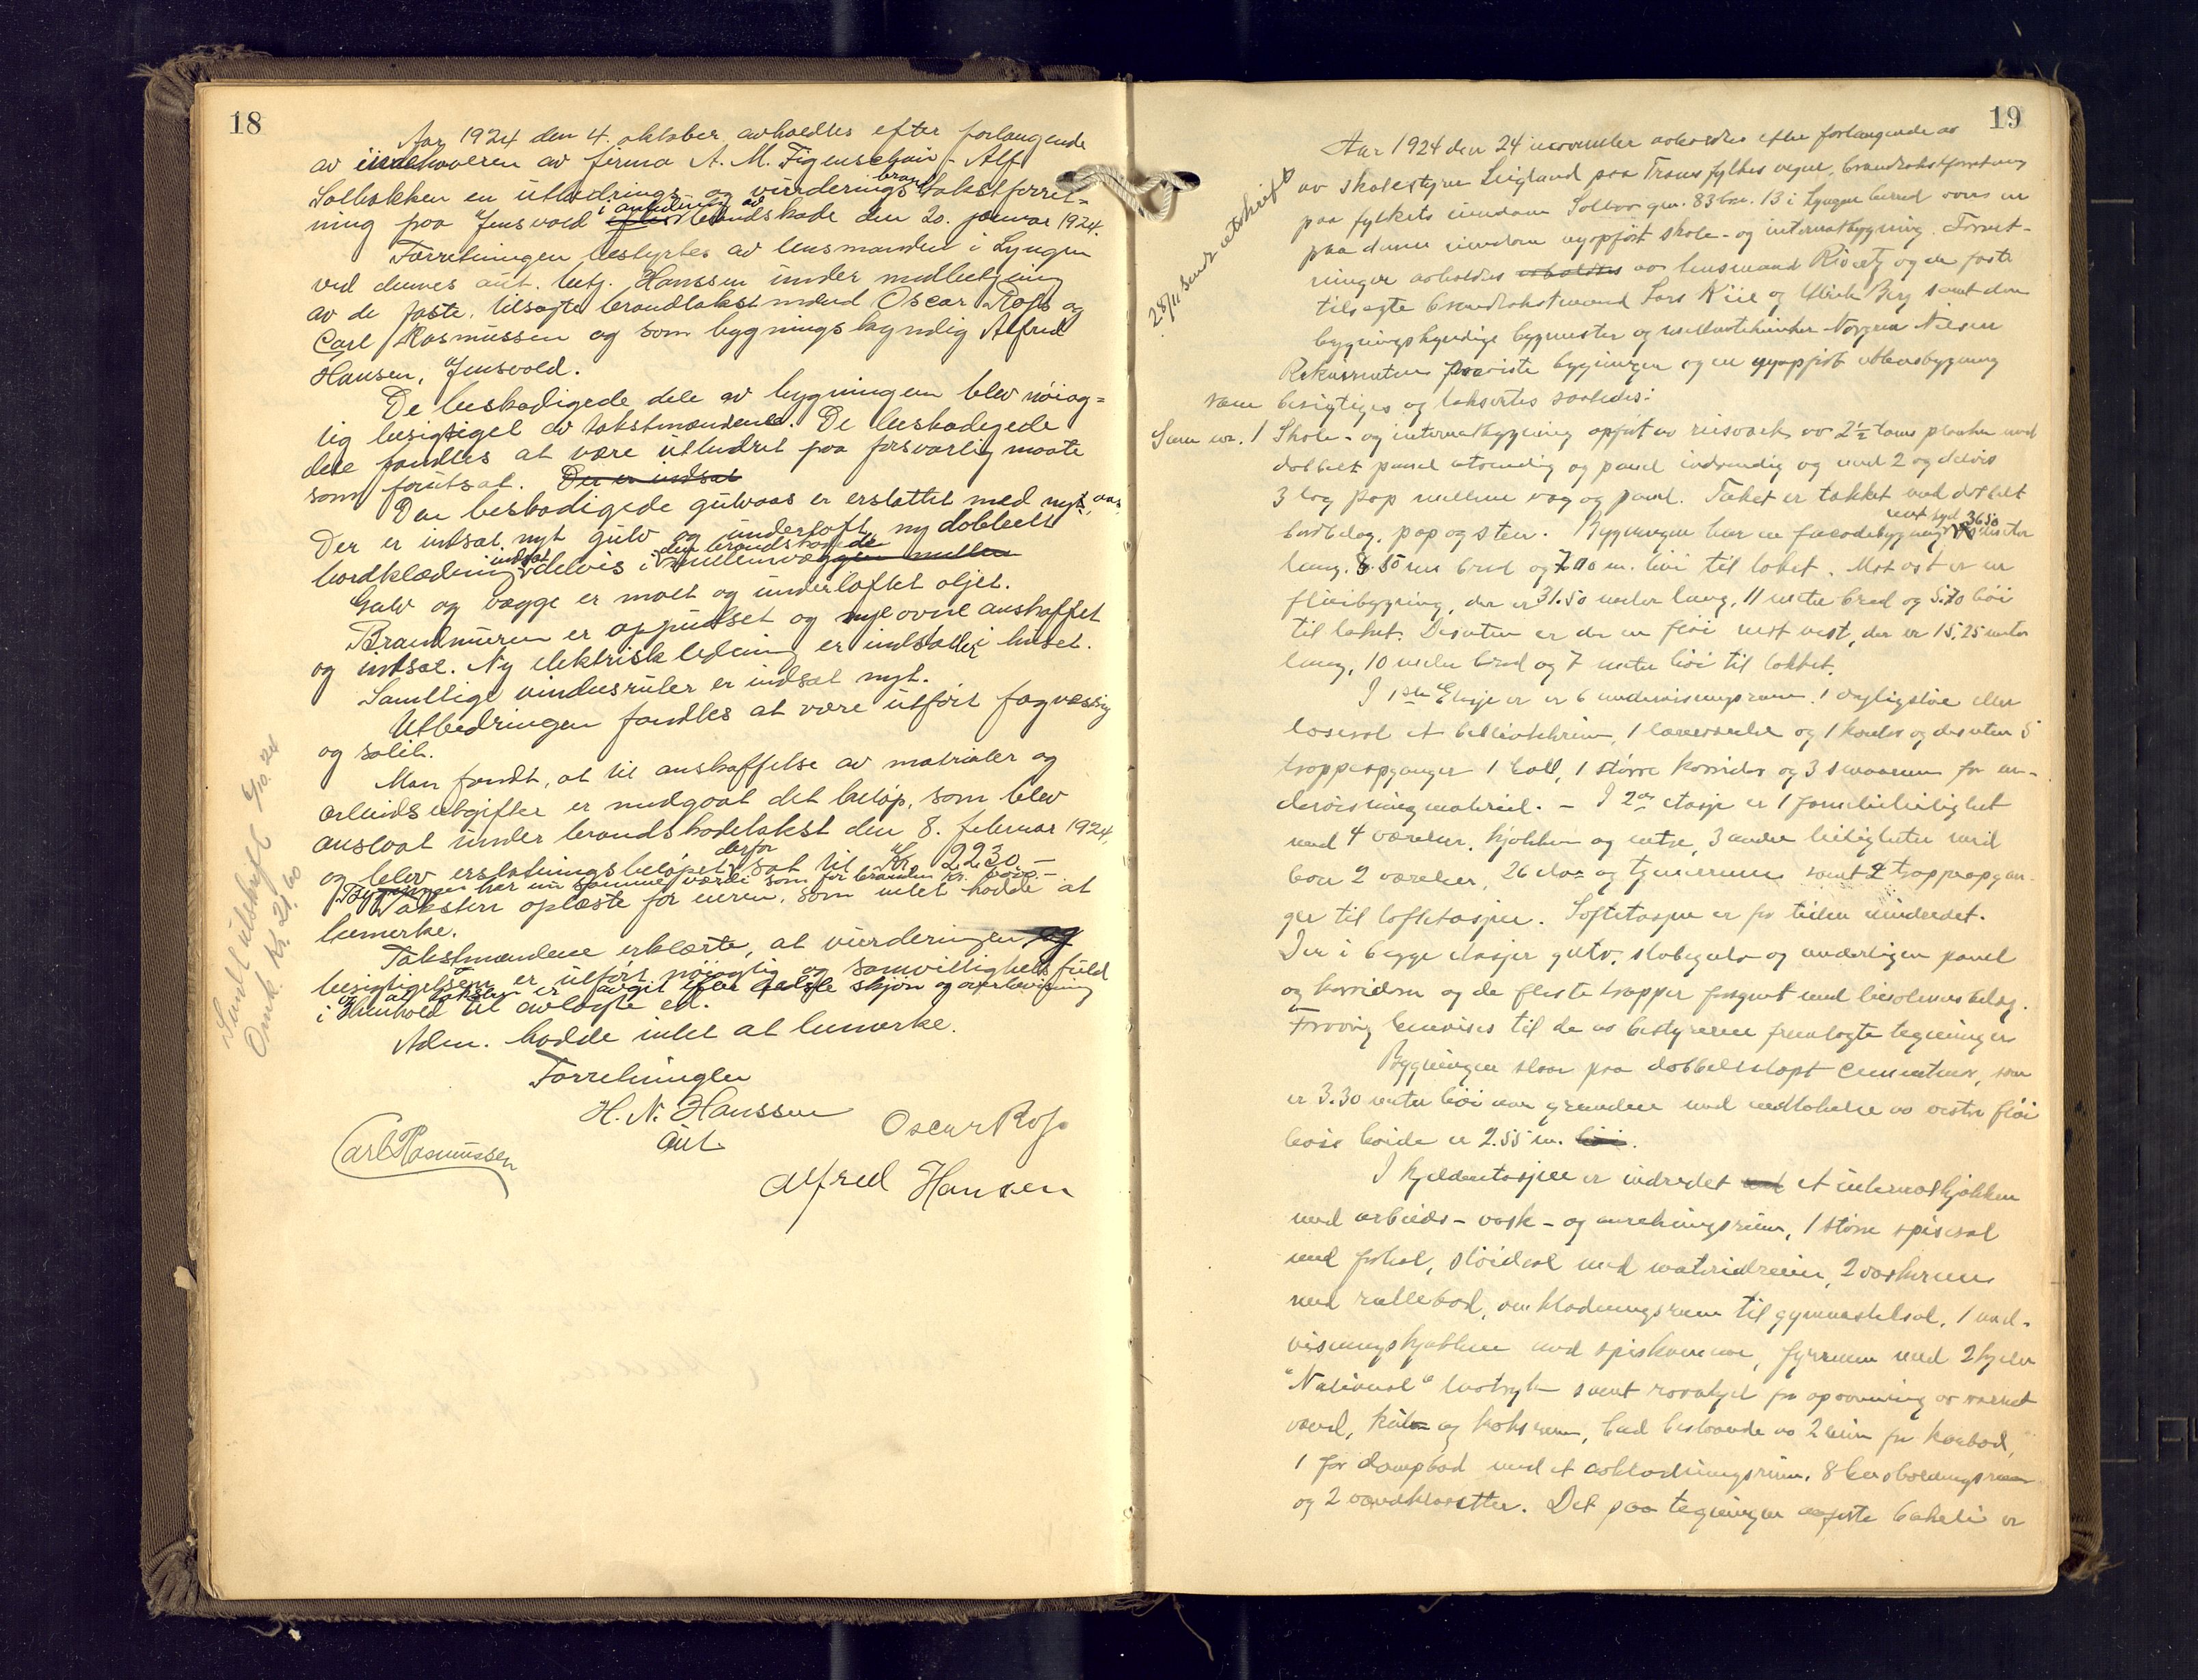 18
Aar 1924 den 4. oktober avholdtes efter forlangende
av indehaveren av firma A. M. Figenschau - Alf
Solbakken en utbedrings- og vurderings brandtakstforret-
ning paa Jensvold i anledning av brandskade den 20. januar 1924.
Forretningen bestyrtes av lensmanden i Lyngen
ved dennes aut. betj. Hanssen under medbetjening
av de faste, tilsagte brandtakstmænd Oscar Ross og
Carl Rasmussen og som bygningskyndig Alfred
Hansen, Jensvold.
De beskadigede dele av bygningen blev nöiag-
tig besigtiget av takstmændene. De beskadigede
dele fandtes at være utbedret paa forsvarlig maate
som forutsat. Der er indsat
Den beskadigede gulvaas er erstattet med ny aas.
Der er indsat nyt gulv og underloft, ny dobbelt
bordklædning indsat delvis i den brandskadede mellemvæggen mellem
Gulv og vægge er malt og underloftet oljet.
Brandmuren er oppudset og nye ovne anskaffet
og indsat. Ny elektrisk ledning er indstallert i huset.
Samtlige vindusruter er indsat nyt.
Utbedringen fandtes at være utfört fagmæssig
og solit.
Man fandt, at til anskaffelse av matrialer og
arbeidsutgifter er medgaat det belöp, som blev
anslaat under brandskadetakst den 8. februar 1924,
og blev erstatningsbelöpet derfor sat til Kr. 2230.-
Bygningen har nu samme værdi som för branden Kr.
Taksten oplæste for eieren, som intet hadde at
bemerke.
Takstmændene erklærte, at vurderingen og
besigtigelsen er utfört nöiagtig og samvittighetsfuld
og at taksten er avgit efter bedste skjön og overbevisning
i henhold til avlagte ed.
Adm. hadde intet at bemerke.
Forretningen
H. N. Hanssen
aut.
Oscar Ross
Carl Rasmussen
Alfred Hansen
Sendt utskrift 6/10.24
Omk. Kr. 21.60
19
28/11 sendt utskrift
Aar 1924 den 24 november avholdtes efter forlangende av
av skolestyrer Leigland paa Troms fylkes vegne, brandtakstforretning
paa fylkets eiendom Solvov gnr. 83 bnr. 13 i Lyngen herred over en
paa denne eiendom nyopfört skole- og internatbygning. Forret-
ningen avholdtes avholdtes av lensmand Rivertz og de faste
tilsagte brandtakstmænd Lars Kiil og Ulrik Berg samt den
bygningskyndige bygmester og Nilsen
Rekvirenten paaviste bygningen og en nyopfört uthusbygning
som besigtiges og takseres saaledes:
Sum nr. 1 Skole- og internatbygning opfört av reisverk av 2½ toms planker med
dobbelt panel utvendig og panel indvendig og med 2 og delvis
3 lag pap mellem væg og panel. Taket er tækket med dobbelt
bordbelag, pap og sten. Bygningen har en facadebygning mot syd 36.50 meter
lang, 8.50 m bred og 7.00 m. höi til taket. Mot öst er en
flöibygning, der er 31.50 meter lang, 11 meter bred og 5.70 höi
til taket. Desuten er der en flöi mot vest, der er 15.25 meter
lang, 10 meter bred og 7 meter höi til taket.
I 1ste Etage er 6 undervisningsrum, 1 dagligstue eller
læsesal et bibliotekrum, 1 læreværelse og 1 kontor og desuten 5
trappeopganger 1 hall, 1 större korridor og 3 smaarum for un-
dervisningsmateriel. - I 2den etasje er 1 familieleilighet
med 4 værelser, kjökken og entre, 3 andre leiligheter med
hver 2 værelser, 26 elev og tjenerrum samt 2 trappeopgan-
ger til loftetasjen. Loftetasjen er for tiden uindredet.
Der i begge etasjer gulv, stubgulv og underliggen panel
og korridorer og de fleste trapper forsynt med linoleumsbelæg.
Forövrig henvises til de av bestyreren fremlagte tegninger
Bygningen staar paa dobbeltstöpt cementmur, som
er 3.30 meter höi over grunden med undtakelse av vestre flöi
hvis höide er 2.55 m. höi.
I kjelderetasjen er indredet med et internatkjökken
med arbeids- vask- og anretningsrum, 1 större spisesal
med forhal, slöidsal med materialrum, 2 vaskerum
med rullebod, omklædningsrum til gymnastiksal, 1 und-
visningskjökken med spiskammer, fyrrum med 2 kjeler
"National" lavtryk samt reservekjel for opvarming av varmt
vand, kul og koksrum, bad bestaaende av 2 rum for karbad,
1 for dampbad med et avklædningsrum, 8 beholdningsrum
og 2 vandklosetter. Det paa tegningen opförte bakeri er